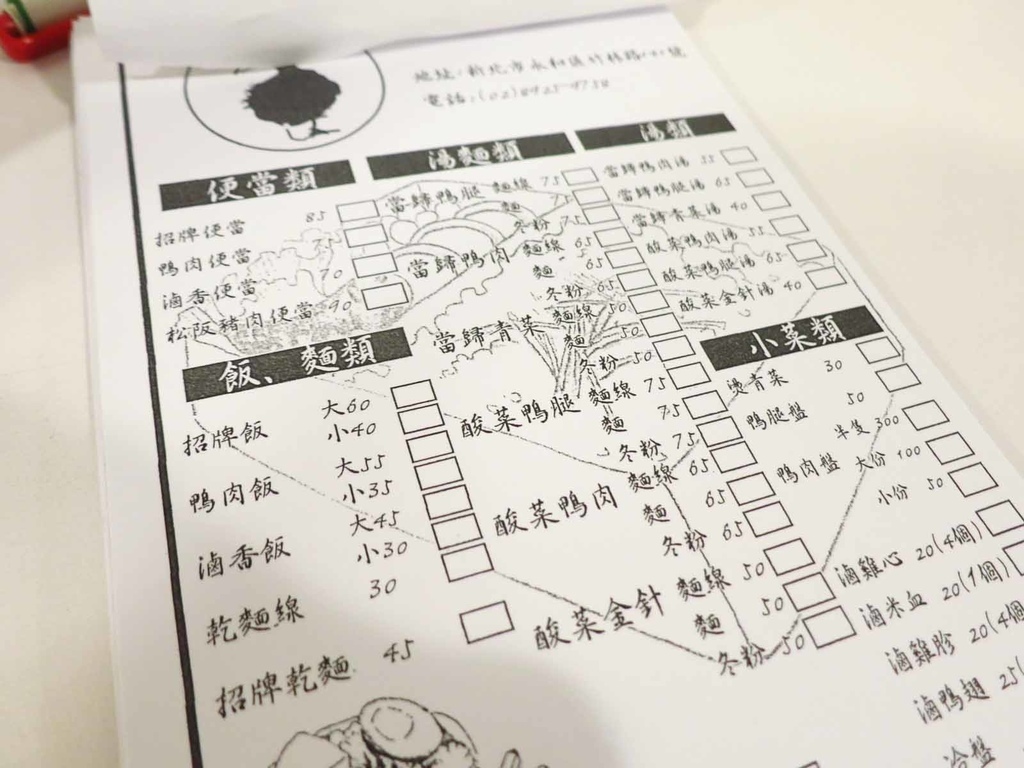 地址:新北市永和區竹林路
電話:(02)8925-9738
便當類
招牌便當 85
鴨肉便當 75
滷香便當 70
松阪豬肉便當 90
飯、麵類
招牌飯 大60
小40
鴨肉飯 大55
小35
滷香飯 大45
小30
乾麵線 30
招牌乾麵 45
湯麵類
當歸鴨腿 麵線 75
麵 75
冬粉 75
當歸鴨肉 麵線 65
麵 65
冬粉 65
當歸青菜 麵線 50
麵 50
冬粉 50
酸菜鴨腿 麵線 75
麵 75
冬粉 75
酸菜鴨肉 麵線 65
麵 65
冬粉 65
酸菜金針 麵線 50
麵 50
冬粉 50
湯類
當歸鴨肉湯 55
當歸鴨腿湯 65
當歸青菜湯 40
酸菜鴨肉湯 55
酸菜鴨腿湯 65
酸菜金針湯 40
小菜類
燙青菜 30
鴨腿盤 50
鴨肉盤 半隻 300
大份 100
小份 50
滷雞心 20(4個)
滷米血 20(1個)
滷雞胗 20(4個
滷鴨翅 25(
冷盤